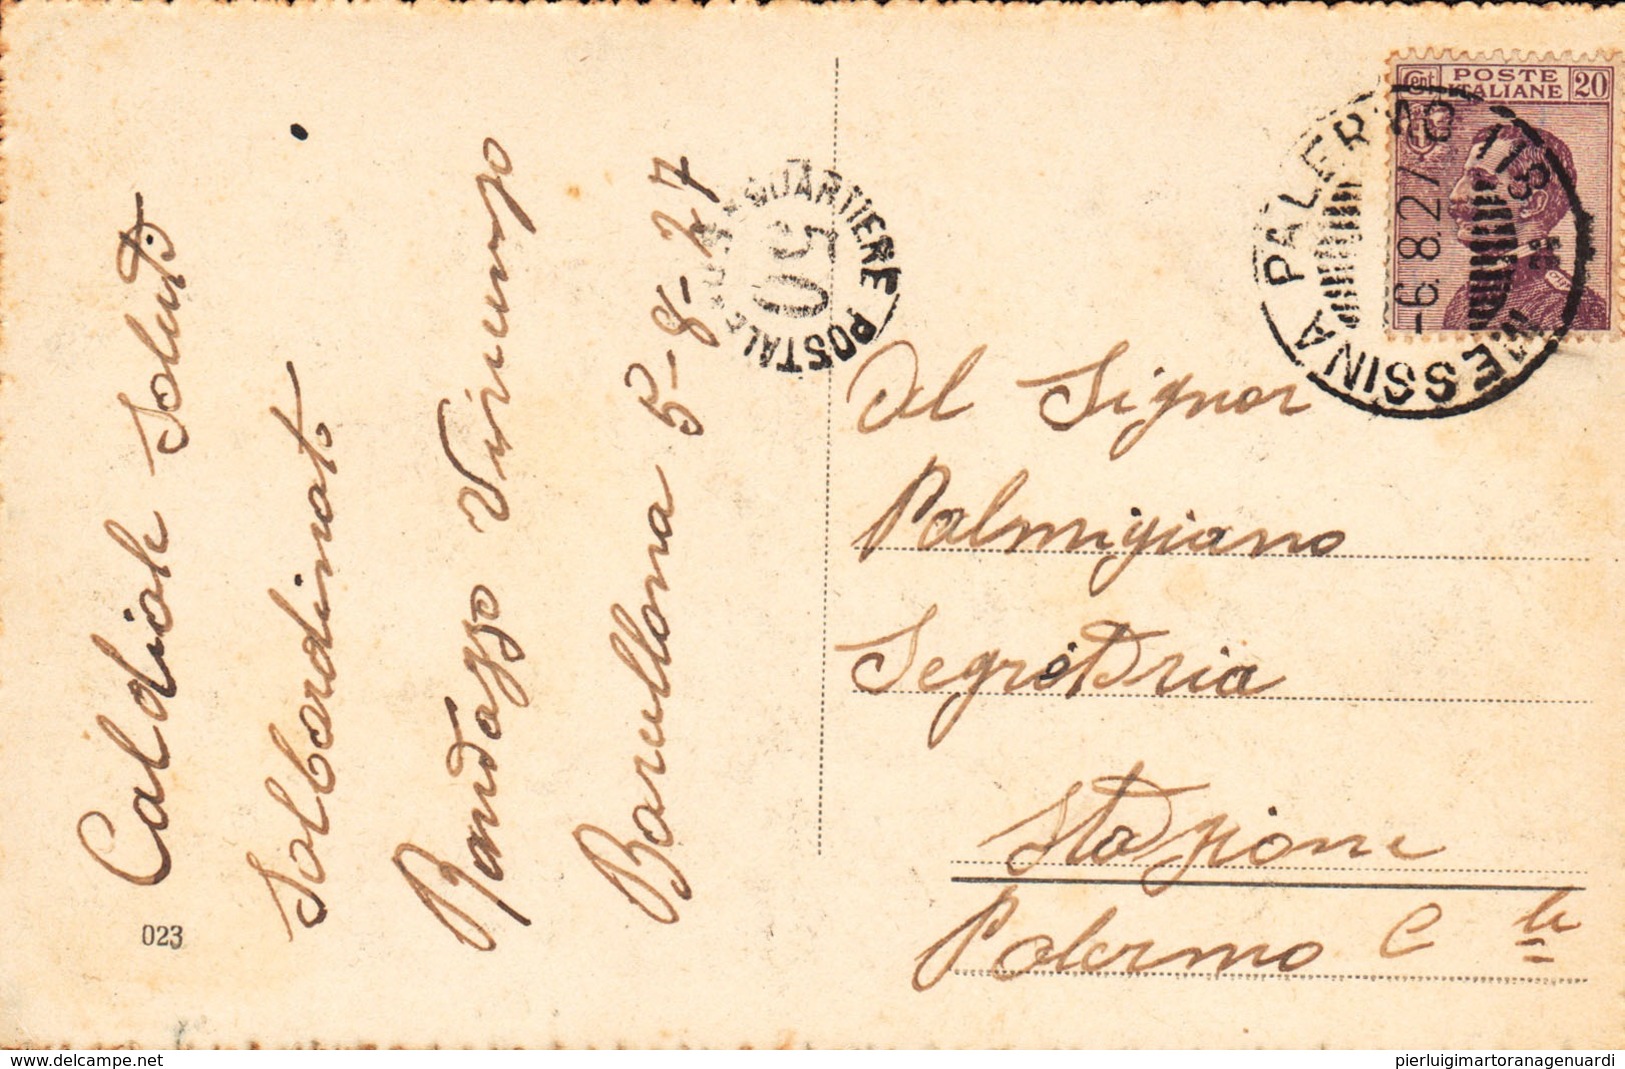 Caldiale Saluti
Salbordinato
Randazzo Vincenzo
Barcellona 5-8-27
023
QUARTIERE POSTALE
50
Cent POSTE ITALIANE 20
PALERMO
MESSINA
-6.8.27
Al Signor
Palmigiano
Segreteria
Stazione
Palermo C le
www.delcampe.net
pierluigimartoranagenuardi